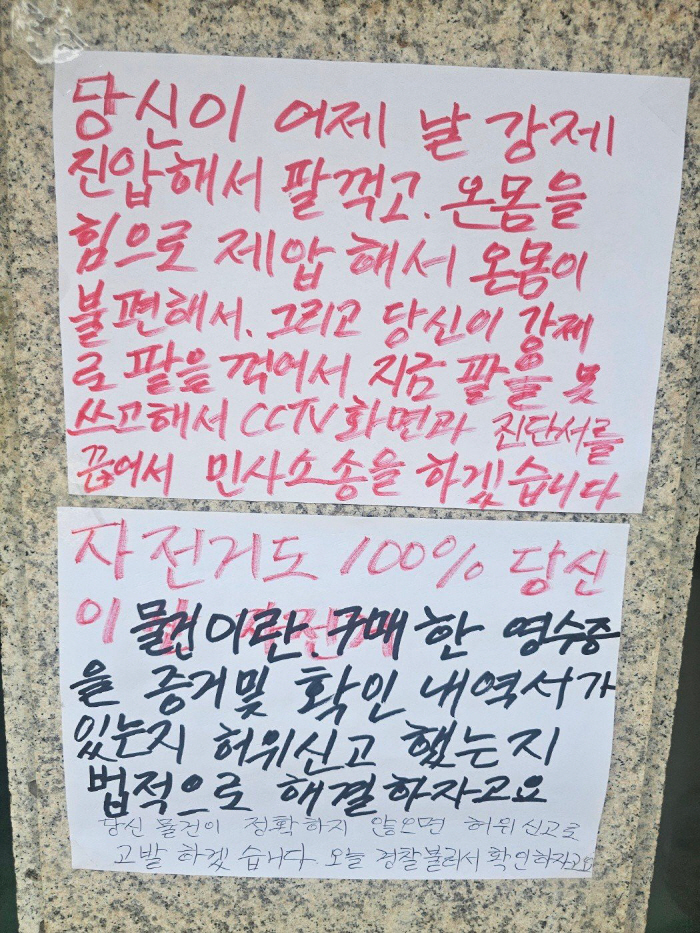 당신이 어제 날 강제
진압해서 팔꺽고. 온몸을
힘으로 제압 해서 온몸이
불편해서. 그리고 당신이 강제
로 팔을 꺽어서 지금 팔을 못
쓰고해서 CCTV화면과 진단서를
끊어서 민사소송을 하겠습니다
자전거도 100% 당신
이 물건이란. 구매한 영수증
을 증거및 확인 내역서가
있는지 허위신고 했는지
법적으로 해결하자고요
당신 물건이 정확하지 않으면 허위신고로
고발 하겠습니다. 오늘 경찰불러서 확인하자고요